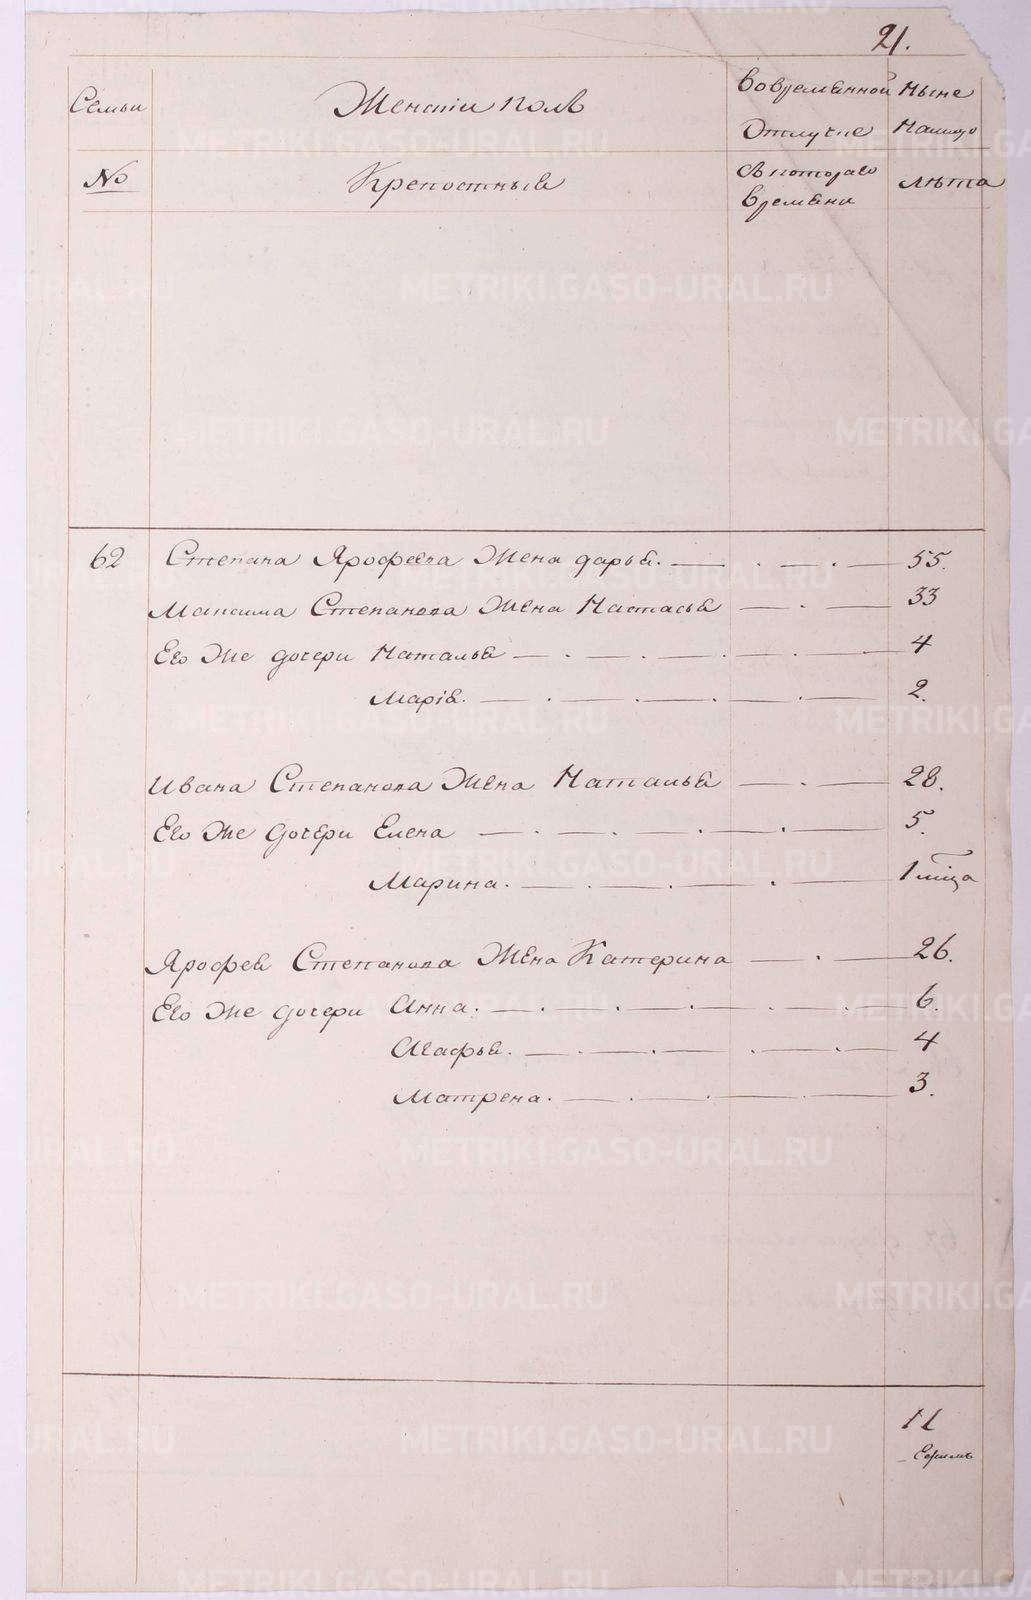 21.
Семьи
Женскiй полъ
Вовременной
Отлучке
Ныне
Налицо
№
Крепостныя
Съкотораго
времяни
лѣта
62 Степана Ярофеева Жена дарья. 55.
Максима Степанова Жена Настасья 33
Его Же дочери Наталья 4
Марiя. 2.
Ивана Степанова Жена Наталья 28.
Его Же дочери Елена 5.
Марина. 1 мца
Ярофея Степанова Жена Катерина 26.
Его Же дочери Анна. 6.
Агафья. 4
Матрена. 3.
11
METRIKI.GASO-URAL.RU